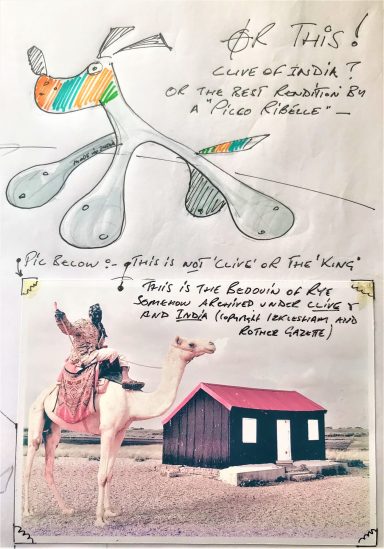 OR THIS!
CLIVE OF INDIA?
OR THE BEST RENDITION BY
A "PICCO RIBELLE" —
MADE IN INDIA
PIC BELOW:- THIS IS NOT 'CLIVE' OR THE 'KING'
THIS IS THE BEDOUIN OF RYE
SOMEHOW ARCHIVED UNDER CLIVE
AND INDIA (COPYRIGHT ICKLESHAM AND
ROTHER GAZETTE)